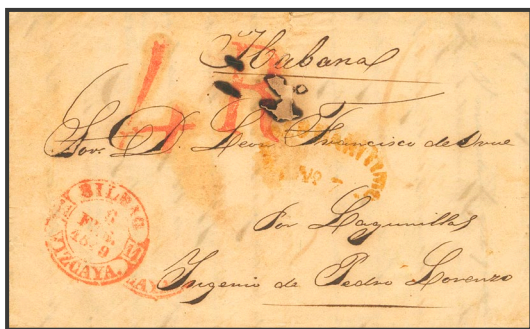 Habana
4 R
Sor. D. Leon Francisco de
Por Lagunillas
Ingenio de Pedro Lorenzo
BILBAO
8
FEB.
1849
VIZCAYA.